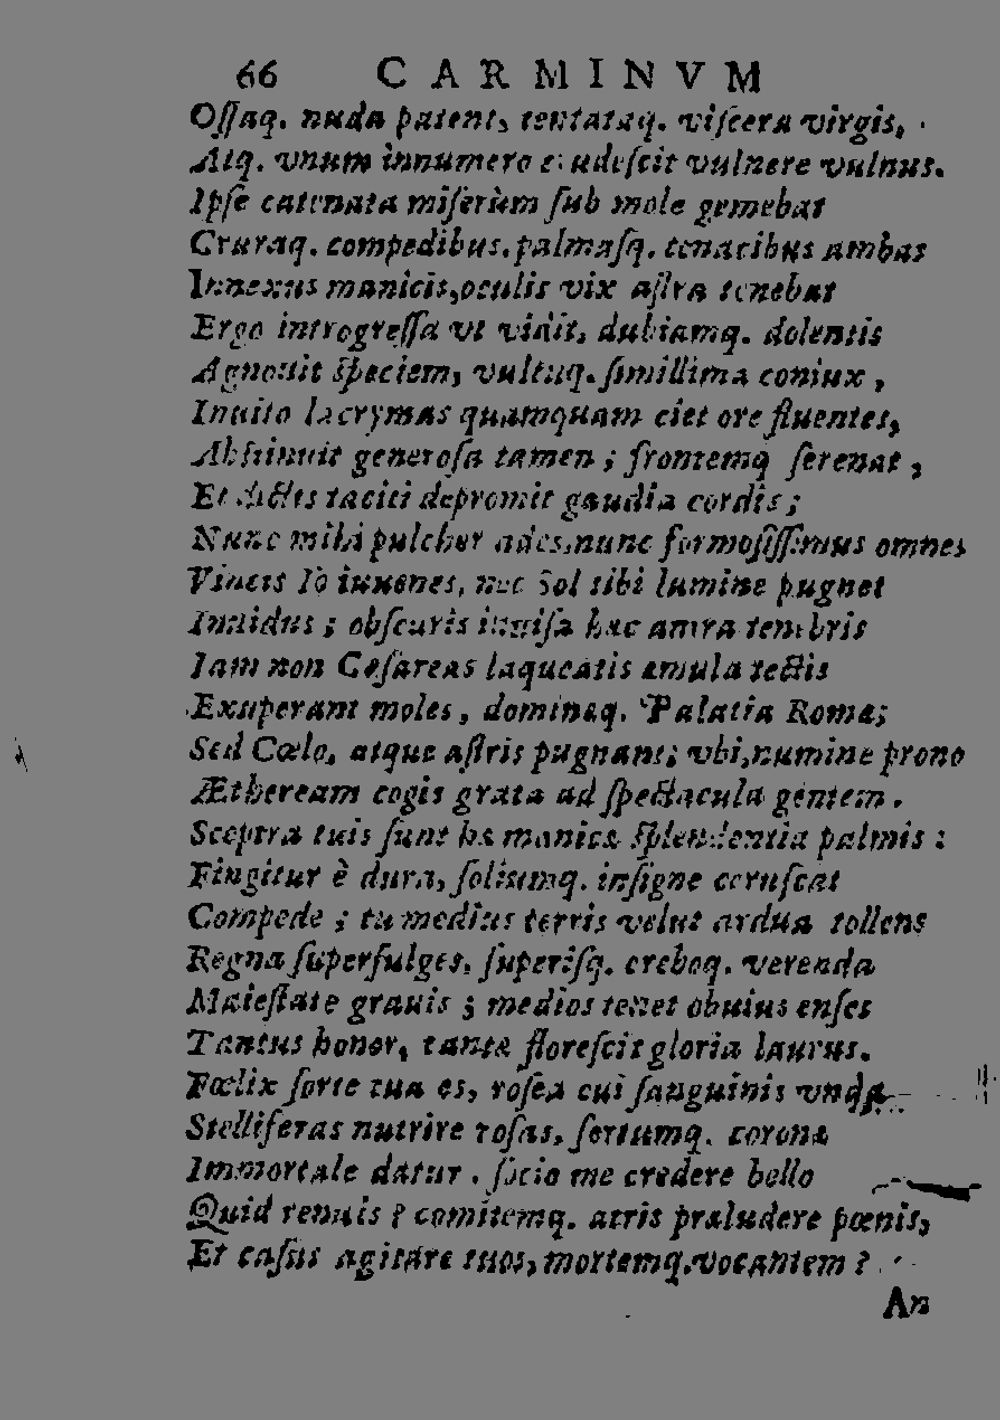 66 CARMINVM
Oſſaq. nuda patent, tentataq. viſcera virgis,
Atq. vnum innumero crudeſcit vulnere vulnus.
Ipſe catenata miſerùm ſub mole gemebat
Cruraq. compedibus, palmaſq. tenacibus ambas
Innexus manicis, oculis vix aſtra tenebat
Ergo introgreſſa vt vidit, dubiamq. dolentis
Agnouit ſpeciem, vultuq. ſimillima coniux,
Inuito lacrymas quamquam ciet ore fluentes,
Abſtinuit generoſa tamen; frontemq ſerenat,
Et dictis taciti depromit gaudia cordis;
Nunc mihi pulcher ades, nunc formoſiſſimus omnes
Vincis Iò iuuenes, nec Sol tibi lumine pugnet
Inuidus; obſcuris inuiſa hæc antra tenebris
Iam non Ceſareas laqueatis æmula tectis
Exuperant moles, dominæq. Palatia Romæ;
Sed Cœlo, atque aſtris pugnant; vbi, numine prono
Ætheream cogis grata ad ſpectacula gentem.
Sceptra tuis ſunt hæ manicæ ſplendentia palmis:
Fingitur è dura, ſoliumq. inſigne coruſcat
Compede; tu medius terris velut ardua tollens
Regna ſuperfulges, ſuperiſq. ereboq. verenda
Maieſtate grauis; medios tenet obuius enſes
Tantus honor, tantæ floreſcit gloria laurus.
Fœlix ſorte tua es, roſea cui ſanguinis vnda
Stelliferas nutrire roſas, ſertumq. coronæ
Immortale datur. ſocio me credere bello
Quid renuis? comitemq. atris præludere pœnis,
Et caſus agitare tuos, mortemq. vocantem?
An